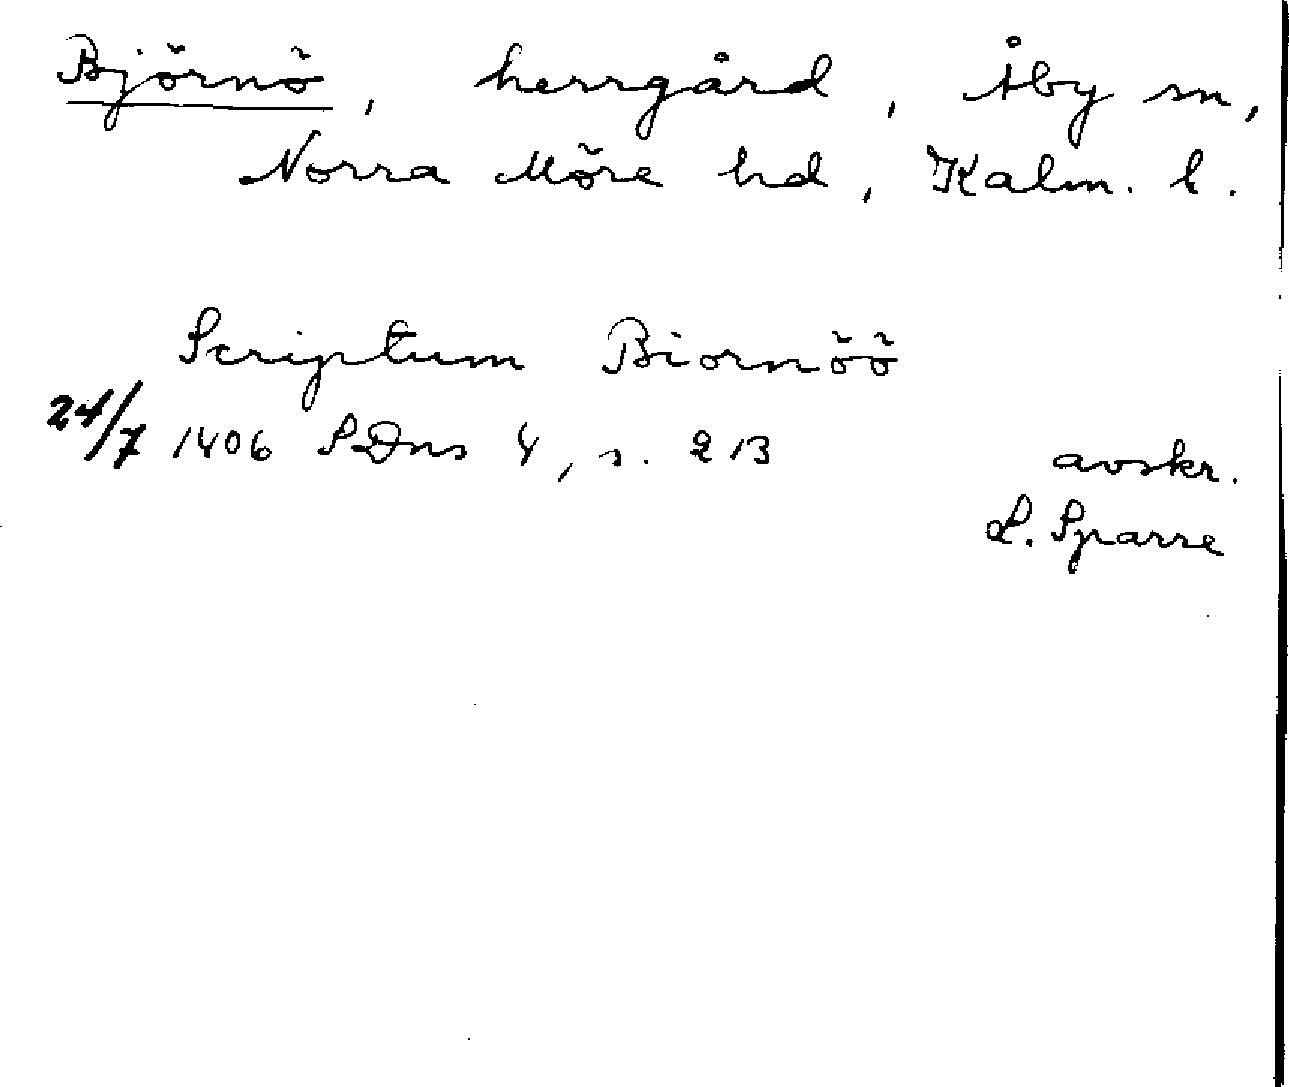 Björnö, herrgård, Åby sn,
Norra Möre hd, Kalm. l.
Scriptum Biornöö
24/7 1406 SDns 4, s. 213
avskr.
L. Sparre